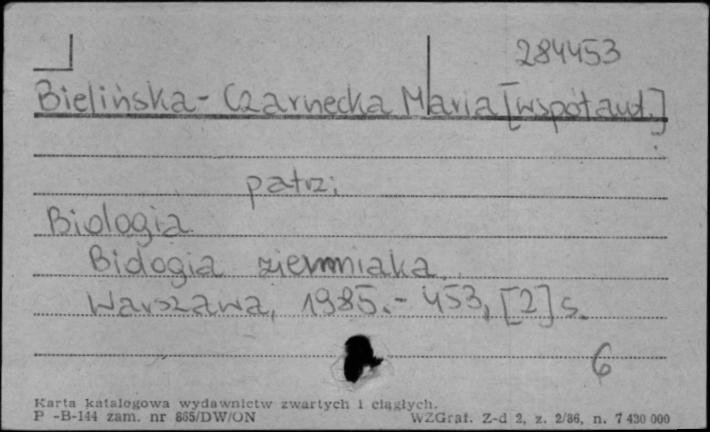 284453
Bielińska-Czarnecka Maria [współaut.]
patrz:
Biologia
Biologia ziemniaka.
Warszawa, 1985.- 453, [2] s.
6
Karta katalogowa wydawnictw zwartych i ciągłych.
P -B-144 zam. nr 865/DW/ON
WZGraf. Z-d 2, z. 2/86, n. 7 430 000